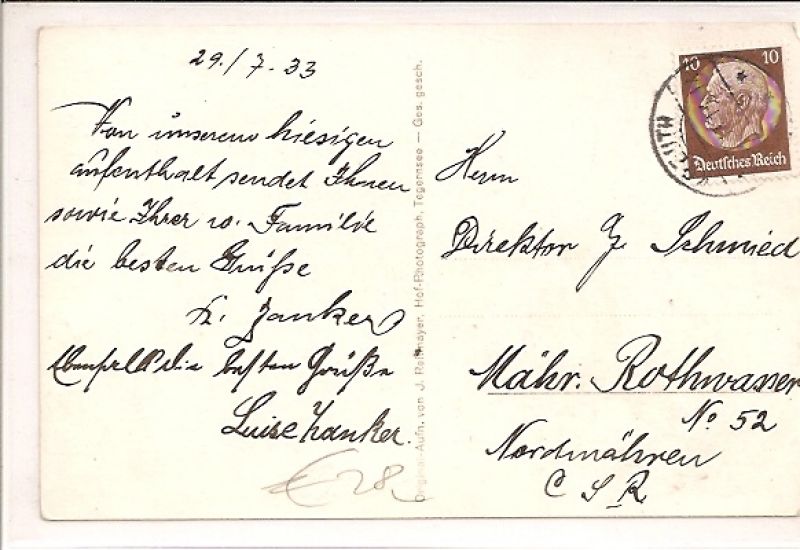 29./7.33
Von unserem hiesigen
aufenthalt sendet Ihnen
sowie Ihrer w. Familie
die besten Grüße
K. Zanker
Ebenfalls die besten Grüße
Luise Zanker.
€ 28,
Original-Aufn. von J. Reitmayer, Hof-Photograph, Tegernsee — Ges. gesch.
10 10
Deutsches Reich
Herrn
Direktor J. Schmied
Mähr. Rothwasser
No 52
Nordmähren
C S R